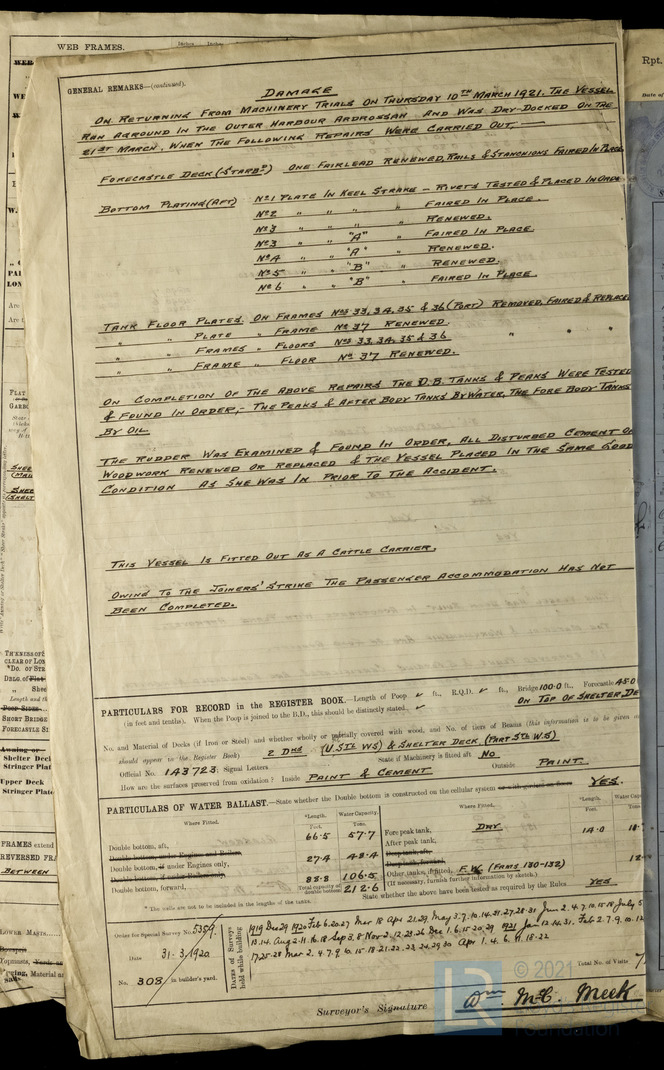 WEB FRAMES.
Inches Inches
Rpt.
Date of
GENERAL REMARKS—(continued).
DAMAGE
ON RETURNING FROM MACHINERY TRIALS ON THURSDAY 10TH MARCH 1921. THE VESSEL
RAN AGROUND IN THE OUTER HARBOUR ARDROSSAN AND WAS DRY-DOCKED ON THE
21ST MARCH. WHEN THE FOLLOWING REPAIRS WERE CARRIED OUT,—
FORECASTLE DECK (STARBD) ONE FAIRLEAD RENEWED, RAILS & STANCHIONS FAIRED IN PLACE
BOTTOM PLATING (AFT) No 1 PLATE IN KEEL STRAKE — RIVETS TESTED & PLACED IN ORDE
No 2 " " " " FAIRED IN PLACE.
No 3 " " " " RENEWED.
No 3 " " "A" " FAIRED IN PLACE.
No 4 " " "A" " RENEWED.
No 5 " " "B" " RENEWED.
No 6 " " "B" " FAIRED IN PLACE
TANK FLOOR PLATES. ON FRAMES Nos 33, 34, 35 & 36 (PORT) REMOVED, FAIRED & REPLACE
" " PLATE " FRAME No 37 RENEWED.
" " FRAMES " FLOORS Nos 33, 34, 35 & 36 " " "
" " FRAME " FLOOR No 37 RENEWED.
ON COMPLETION OF THE ABOVE REPAIRS THE D.B. TANKS & PEAKS WERE TESTED
& FOUND IN ORDER,- THE PEAKS & AFTER BODY TANKS BY WATER, THE FORE BODY TANKS
BY OIL.
THE RUDDER WAS EXAMINED & FOUND IN ORDER, ALL DISTURBED CEMENT O
WOODWORK RENEWED OR REPLACED & THE VESSEL PLACED IN THE SAME GOOD
CONDITION AS SHE WAS IN PRIOR TO THE ACCIDENT.
THIS VESSEL IS FITTED OUT AS A CATTLE CARRIER.
OWING TO THE JOINERS' STRIKE THE PASSENGER ACCOMMODATION HAS NOT
BEEN COMPLETED.
PARTICULARS FOR RECORD in the REGISTER BOOK.—Length of Poop ✓ ft., R.Q.D. ✓ ft., Bridge 100.0 ft., Forecastle 45.0
(in feet and tenths). When the Poop is joined to the B.D., this should be distinctly stated. ✓ ON TOP OF SHELTER DE
No. and Material of Decks (if Iron or Steel) and whether wholly or partially covered with wood, and No. of tiers of Beams (this information is to be given
should appear in the Register Book) 2 DKS (U STL WS) & SHELTER DECK (PART STL W.S)
Official No. 143723; Signal Letters State if Machinery is fitted aft No
How are the surfaces preserved from oxidation? Inside PAINT & CEMENT Outside PAINT
PARTICULARS OF WATER BALLAST.—State whether the Double bottom is constructed on the cellular system YES.
Where Fitted. *Length. Feet. Water Capacity. Tons. Where Fitted. *Length. Feet. Water Capac
Double bottom, aft, 66.5 57.7 Fore peak tank, DRY 14.0
After peak tank,
Double bottom, if under Engines only, 27.4 48.4
Double bottom, forward, 88.8 106.5 Other tanks, if fitted, F.W. (FRMS 130-132)
Total capacity of double bottom 212.6 (If necessary, furnish further information by sketch.)
* The wells are not to be included in the lengths of the tanks. State whether the above have been tested as required by the Rules YES
Order for Special Survey No. 5359.
Date 31.3.1920
No. 308 in builder's yard.
DATES of Surveys held while building
1919 Dec 29 1920 Feb 6.20.27 Mar 18 Apr 21.29, May 3.7.10.14.31.27.28.31 June 2.4.7.10.15.18 July 5
Total No. of Visits
Surveyor's Signature Wm McC. Meek
© 2021
LR
Foundation